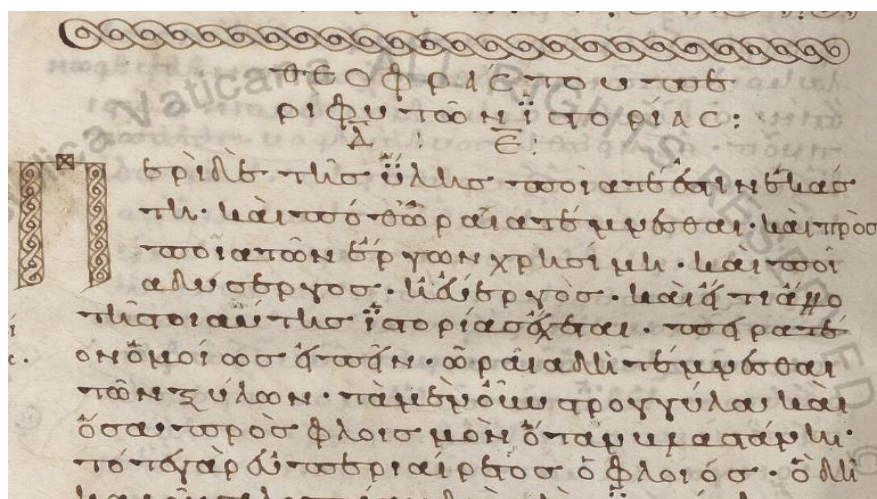 ΘΕΟΦΡΑΣΤΟΥ ΠΕ
ΡΙ ΦΥΤΩΝ ΙΣΤΟΡΙΑΣ:
Δ Ε:
Περὶ δὲ τῆς ὕλης ποία τέ ἐστιν ἑκάσ
τη· καὶ πόθ' ὡραία τέμνεσθαι· καὶ πρὸς
ποῖα τῶν ἔργων χρησίμη· καὶ ποί
α δύσεργος· ἢ εὔεργὸς· καὶ εἴ τι ἄλλο
τῆς τοιαύτης ἱστορίας ἔχεται· πειρατέ
ον ὁμοίως εἰπεῖν· ὡραῖα δὴ τέμνεσθαι
τῶν ξύλων· τὰ μὲν οὖν στρογγύλα καὶ
ὅσα πρὸς φλοισμὸν ὅταν βλαστάνη·
τότε γὰρ εὐπεριαίρετος ὁ φλοιός· ὃ δὴ